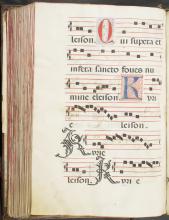 leison. Qui supera et
infera sancto foues nu
mine eleison. Kyri
e leison.
Kyrie
leison. Kyri e